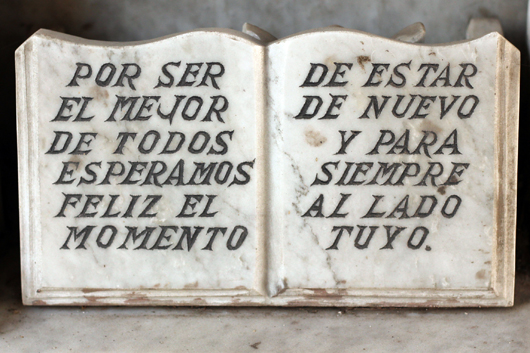 POR SER
EL MEJOR
DE TODOS
ESPERAMOS
FELIZ EL
MOMENTO
DE ESTAR
DE NUEVO
Y PARA
SIEMPRE
AL LADO
TUYO.